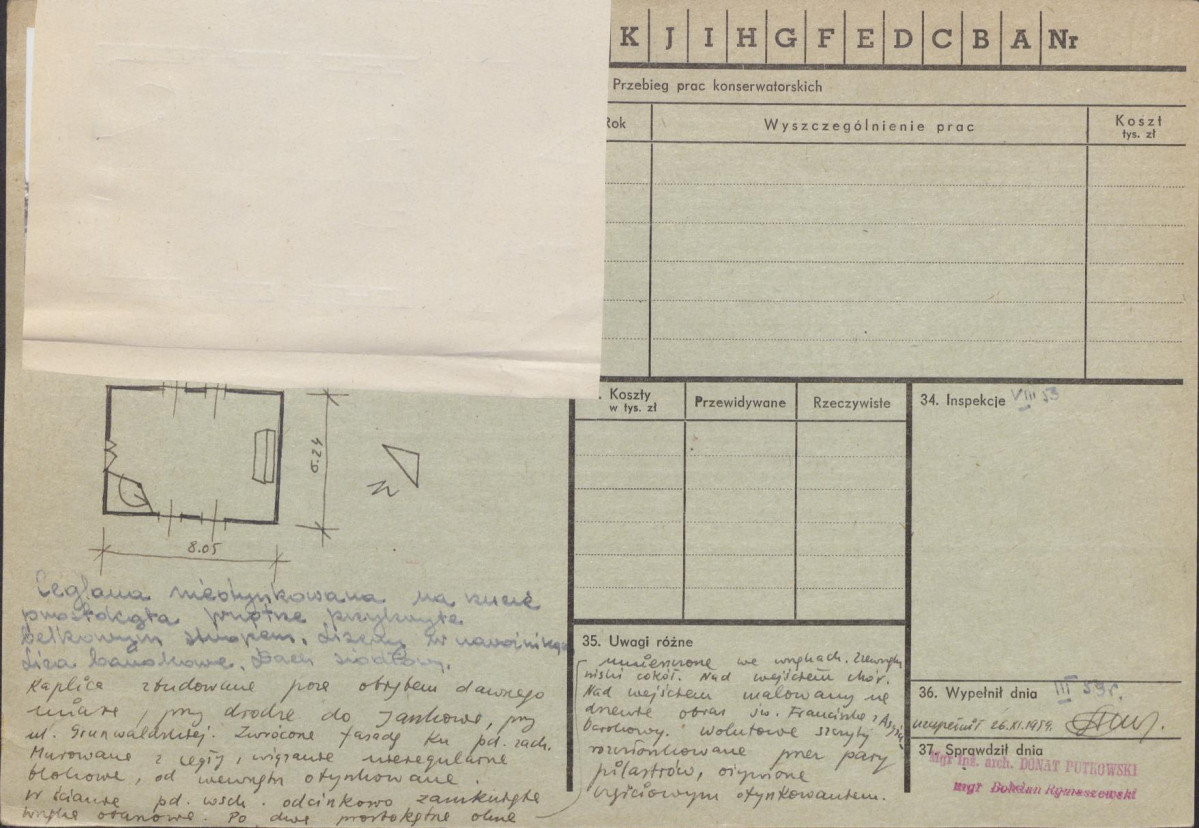 K J I H G F E D C B A Nr
Przebieg prac konserwatorskich
Rok
Wyszczególnienie prac
Koszt
tys. zł
Koszty
w tys. zł
Przewidywane
Rzeczywiste
34. Inspekcje VIII 53
6.24
N
8.05
Ceglana nieotynkowana na rzucie
prostokąta wnętrze przykryte
belkowym stropem. Lizeny w narożnikach
Lica bankowe. Dach siodłowy.
Kaplica zbudowana poza obrębem dawnego
miasta, przy drodze do Jastkowa, przy
ul. Grunwaldzkiej. Zwrócona fasadą ku pd. zach.
Murowana z cegły, wiązanie nieregularne
blokowe, od wewnątrz otynkowana.
W ścianie pd. wsch. odcinkowo zamknięta
wnęka ołtarzowa. Po dwa prostokątne okna
35. Uwagi różne
umieszczone we wnękach. Zewnątrz
niski cokół. Nad wejściem chór.
Nad wejściem malowany na
drewnie obraz św. Franciszka z Asyżu
barokowy. Wolutowe szczyty
rozczłonkowane przez pary
pilastrów, ożywione
częściowym otynkowaniem.
36. Wypełnił dnia III 59r.
uzupełnił 26.XI.1959.
37. Sprawdził dnia
mgr inż. arch. DONAT PUTKOWSKI
mgr Bohdan Rymaszewski